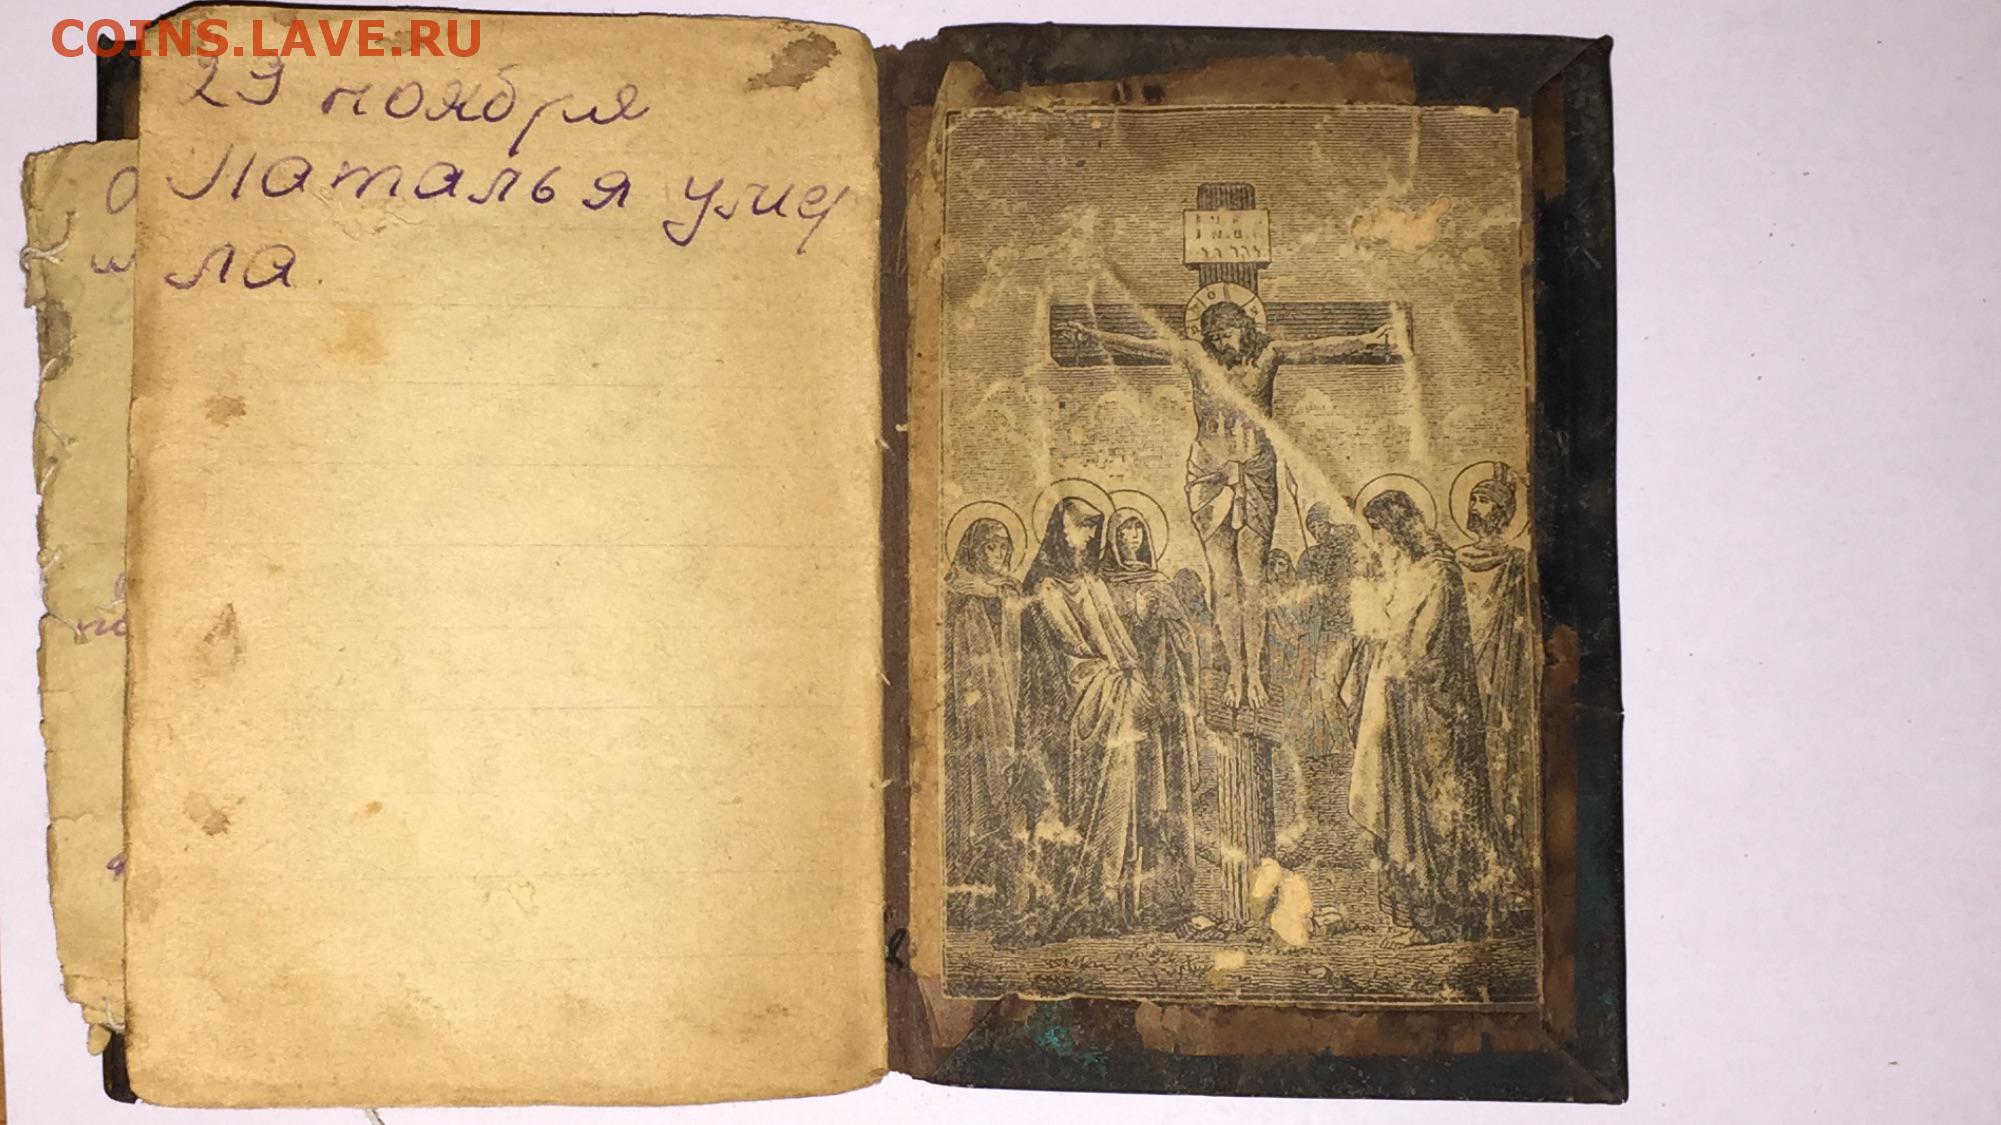 COINS.LAVE.RU
23 ноября
Наталья умер
ла.